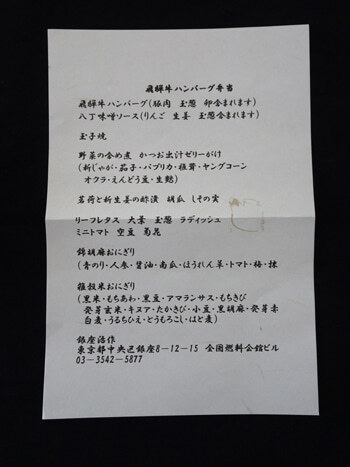 飛騨牛ハンバーグ弁当
飛騨牛ハンバーグ(豚肉 玉葱 卵含まれます)
八丁味噌ソース(りんご 生姜 玉葱含まれます)
玉子焼
野菜の含め煮 かつお出汁ゼリーがけ
(新じゃが・茄子・パプリカ・椎茸・ヤングコーン
オクラ・えんどう豆・生麩)
茗荷と新生姜の酢漬 胡瓜 しその実
リーフレタス 大葉 玉葱 ラディッシュ
ミニトマト 空豆 菊花
錦胡麻おにぎり
(青のり・人参・醤油・南瓜・ほうれん草・トマト・梅・抹
雑穀米おにぎり
(黒米・もちあわ・黒豆・アマランサス・もちきび
発芽玄米・キヌア・たかきび・小豆・黒胡麻・発芽赤
白麦・うるちひえ・とうもろこし・はと麦)
銀座活作
東京都中央区銀座8-12-15 全国燃料会館ビル
03-3542-5877